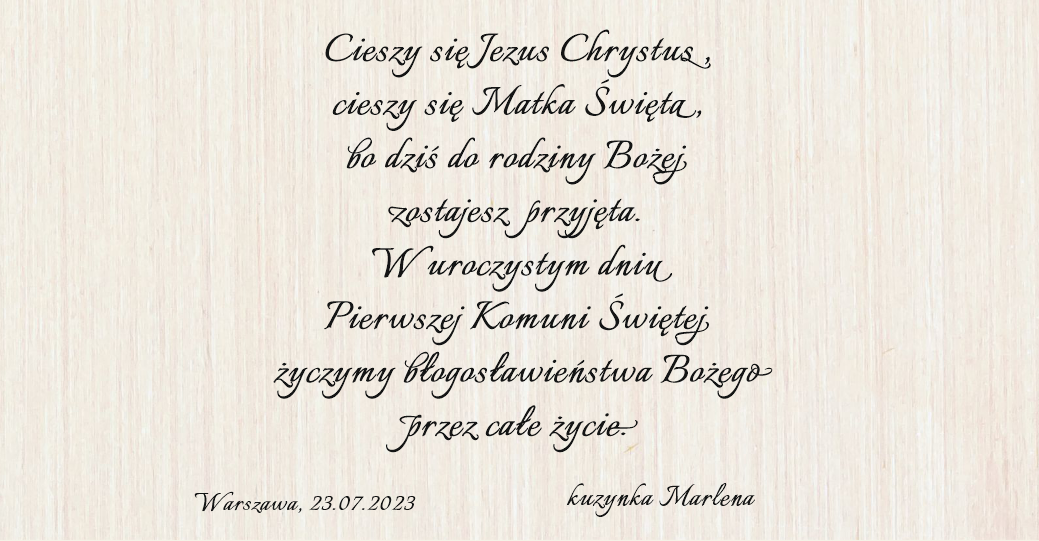 Cieszy się Jezus Chrystus,
cieszy się Matka Święta,
bo dziś do rodziny Bożej
zostajesz przyjęta.
W uroczystym dniu
Pierwszej Komuni Świętej
życzymy błogosławieństwa Bożego
przez całe życie.
Warszawa, 23.07.2023
kuzynka Marlena